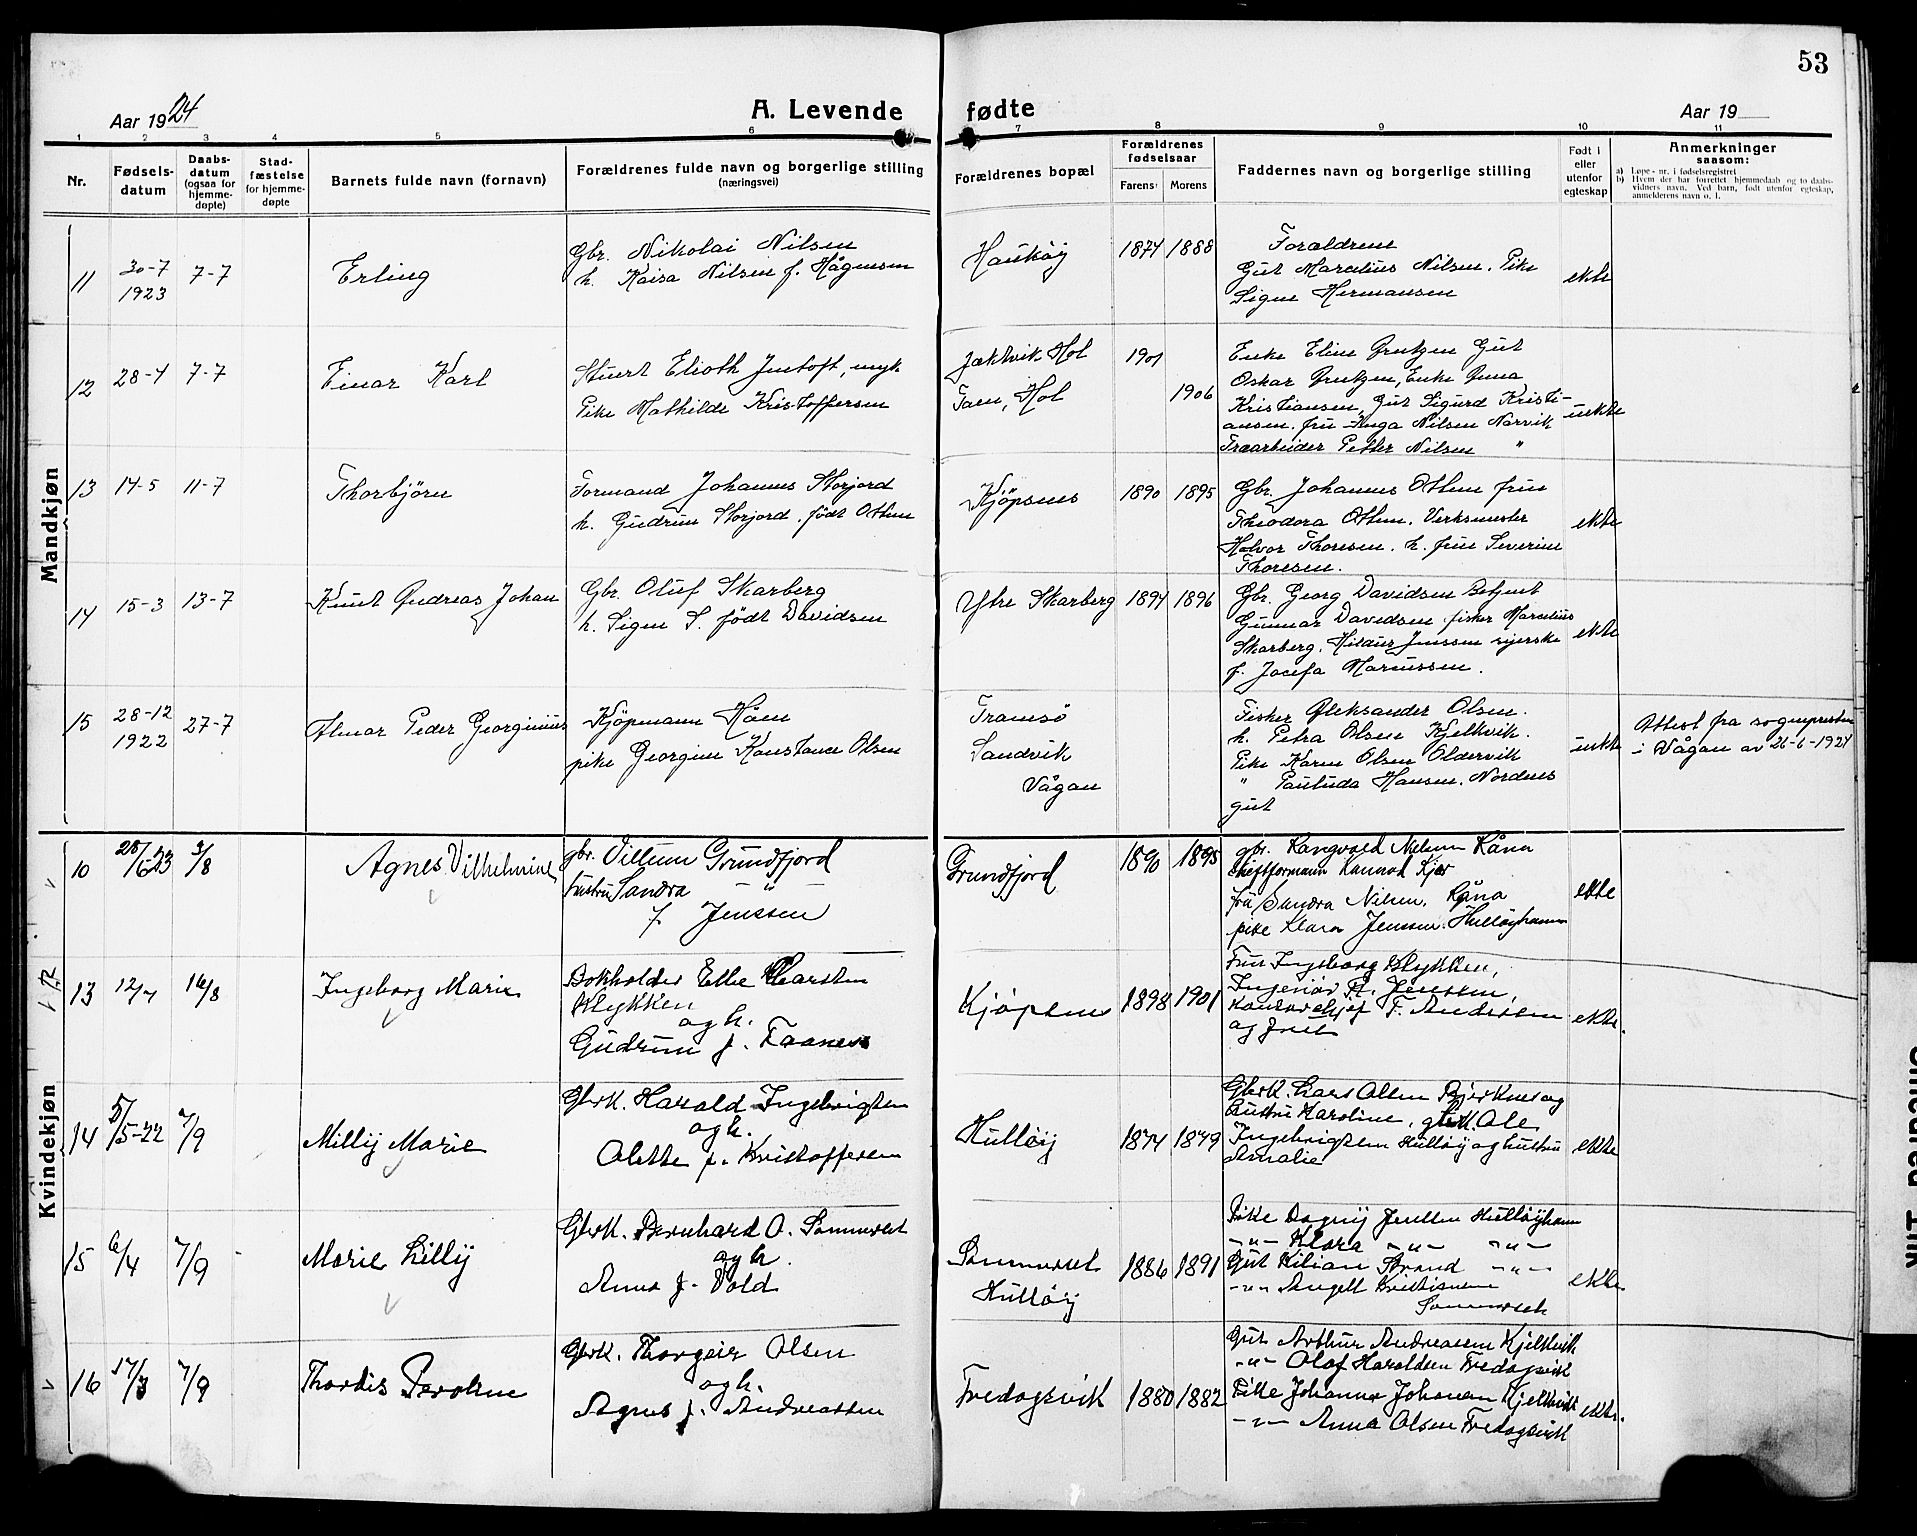 53
Aar 1924
A. Levende
fødte
Aar 19
1 2 3 4 5 6 7 8 9 10 11
Nr.
Fødsels-
datum
Daabs-
datum
(ogsaa for
hjemme-
døpte)
Stad-
fæstelse
for hjemme-
døpte
Barnets fulde navn (fornavn)
Forældrenes fulde navn og borgerlige stilling
(næringsvei)
Forældrenes bopæl
Forældrenes
fødselsaar
Farens Morens
Faddernes navn og borgerlige stilling
Født i
eller
utenfor
egteskap
Anmerkninger
saasom:
a) Løpe-nr. i fødselsregistret
b) Hvem der har forrettet hjemmedaab og to daabs-
vidners navn. Ved barn, født utenfor egteskap,
anmelderens navn o. l.
Mandkjøn
11
30-7
1923
7-7
Erling
Gbr. Nikolai Nilsen
h. Kaisa Nilsen f. Hågensen
Haukøy
1874 1888
Forældrene
Gut Marcelius Nilsen. Pike
Signe Hermansen
ekte
12
28-4
7-7
Einar Karl
Stuert Elioth Jentoft, ungk
Pike Mathilde Kristoffersen
Jaktvik Hol
Hol
1901
1906
Enke Eline Gut
Oskar Enke Anna
Kristiansen, Gut Sigurd Kristi-
ansen. fru Inga Nilsen Narvik
Træarbeider Petter Nilsen "
uekte
13
14-5
11-7
Thorbjörn
Formand Johannes Storjord
h. Gudrun Storjord. født Ottem
Kjöpsnes
1890 1895
Gbr. Johannes Ottem fru
Theodora Ottem. Verksmester
Halvor Thoresen. h. fru Severine
Thoresen.
ekte
14
15-3
13-7
Knut Andreas Johan
Gbr. Oluf Skarberg
h. Signe S. født Davidsen
Ytre Skarberg
1894 1896
Gbr. Georg Davidsen Betjent
Gunnar Davidsen. fisker Marcelius
Skarberg. Hildur Jenssen syerske
f. Josefa Mariussen.
ekte
15
28-12
1922
27-7
Almar Peder Georginius
Kjöpmann Håen
pike Georgine Konstance Olsen
Tromsö
Sandvik
Vågan
Fisker Aleksander Olsen.
h. Petra Olsen Kjelkvik.
Pike Karen Olsen Oldervik
" Paulinda Hansen. Nordnes
gut
uekte
Attest fra sognepresten
i Vågan av 26-6-1924
Kvindekjøn
10
3/8
Agnes Vilhelmine
gbr. Villum Grundfjord
hustru Sandra
f. Jenssen
Grundfjord
1890 1895
gbr. Rangvald Nielsen Råna
skiftformann Kjær
fru Sandra Nilsen. Råna
pike Klara Jenssen. Hulløyhamn
ekte
13
12/4
16/8
Ingeborg Marie
Bokholder Elle Carsten
Klykken
og h.
Gudrun f. Faanes
Kjöpsnes
1898 1901
Fru Ingeborg Klykken,
Ingeniör Jenssen,
Kontorchef F. Andersen
og frue
ekte.
14
5/5-22
7/9
Milly Marie
Gbrk. Harald Ingebrigtsen
og h.
Alette f. Kristoffersen
Hulløy
1874 1879
Gbrk. Lars Olsen Bjerknes og
hustru Karoline, gbrk. Ole
Ingebrigtsen Hulløy og hustru
Amalie
ekte
15
6/4
7/9
Marie Lilly
Gbrk. Bernhard O. Sommerset
og h.
Anna f. Vold
Sommerset
Hulløy
1886 1891
Pike Dagny Jensen Hulløyhamn
-"- Klara -"- -"-
Gut Kilian Strand -"-
-"- Angell Kristiansen
Sommerset
ekte.
16
17/3
7/9
Thordis Peroline
Gbrk. Thorgeir Olsen
og h.
Agnes f. Andreassen
Fredagsvik
1880 1882
Gut Arthur Andreassen Kjelkvik
-"- Olaf Haraldsen Fredagsvik
Pike Johanna Johansen Kjelkvik
-"- Anna Olsen Fredagsvik
ekte.